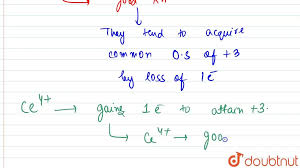 good
They tend to acquire
common O.S of +3
by loss of 1e⁻
Ce⁴⁺ → gains 1e⁻ to attain +3.
↳ Ce⁴⁺ → goo
doubtnut